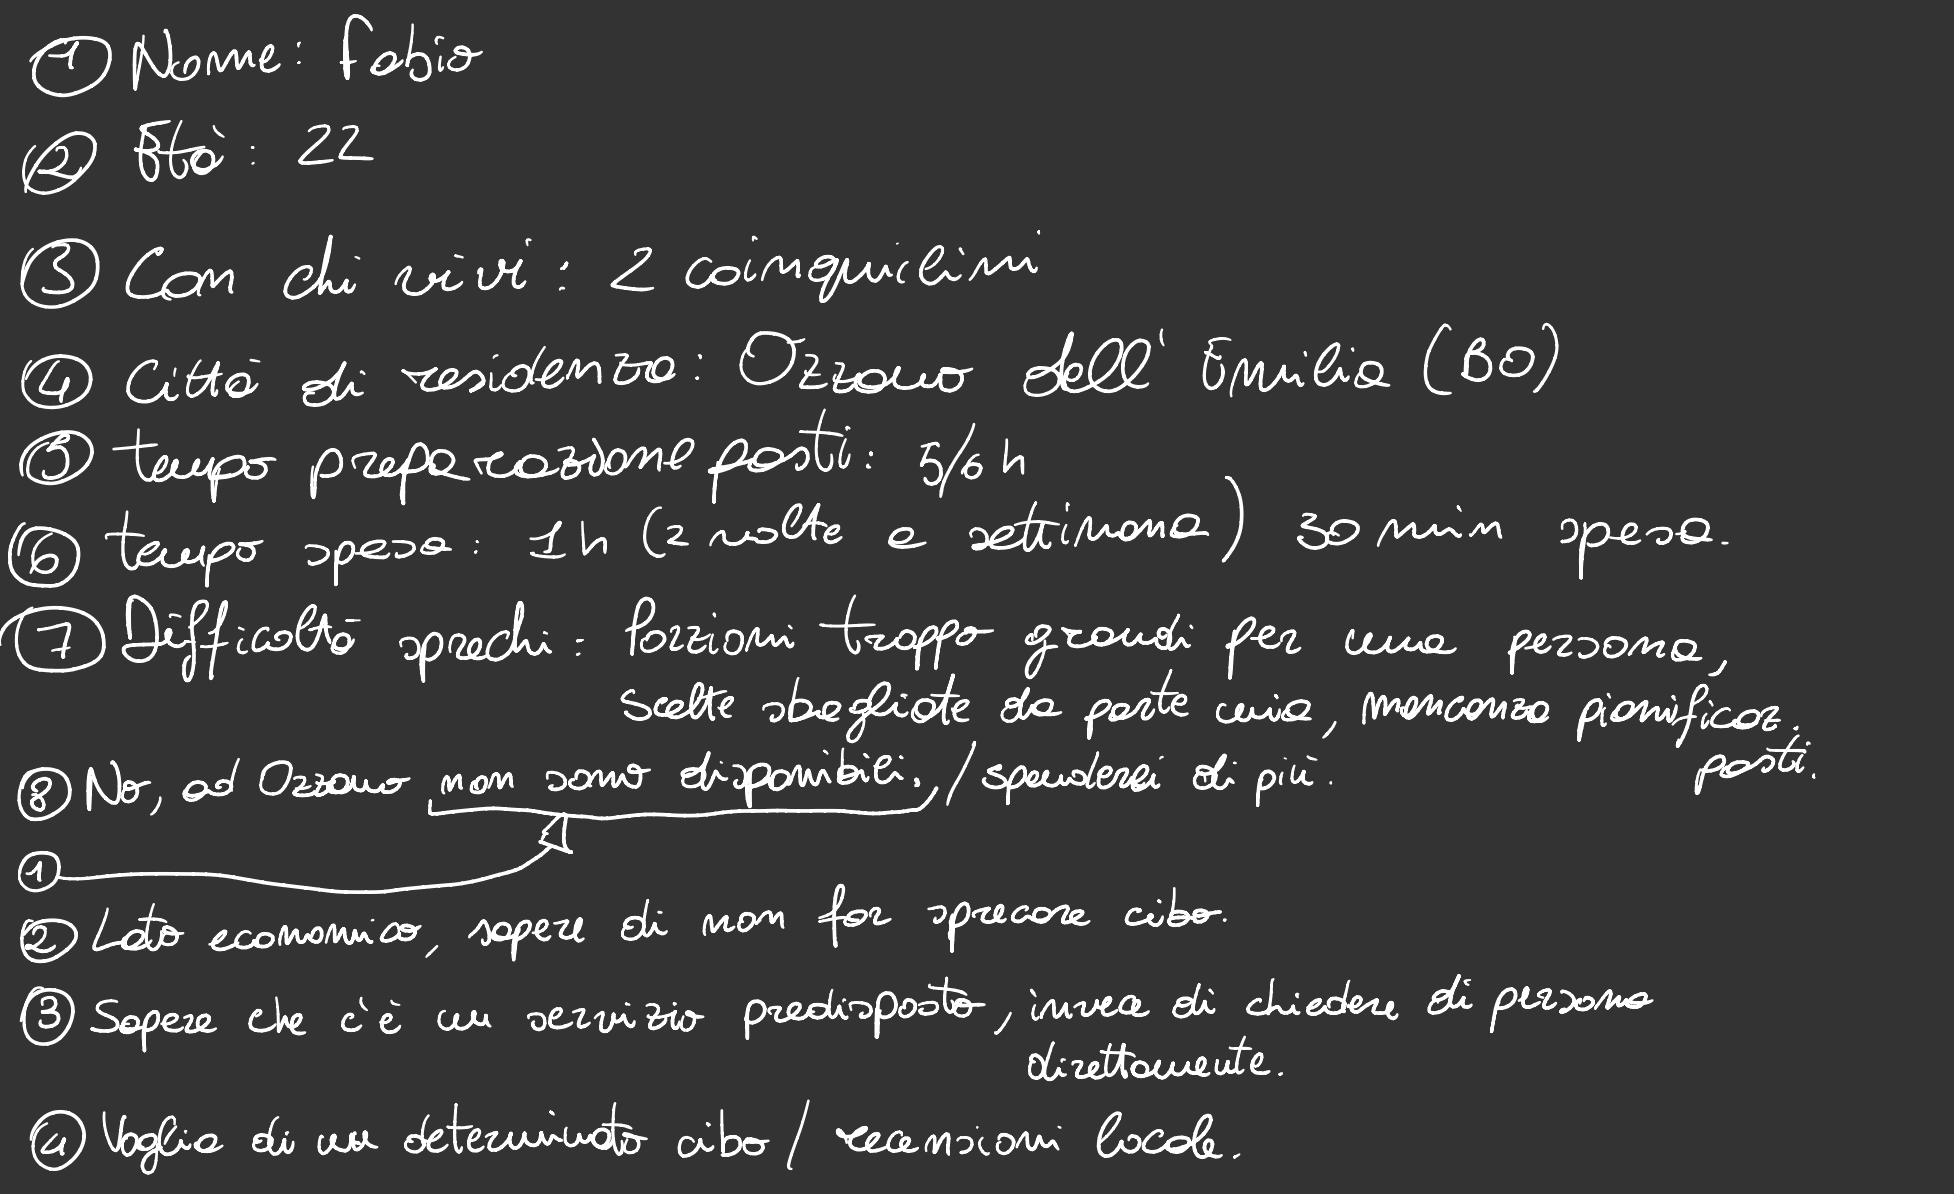 ① Nome: Fabio
② Età: 22
③ Con chi vivi: 2 coinquilini
④ Città di residenza: Ozzano dell'Emilia (BO)
⑤ tempo preparazione pasti: 5/6 h
⑥ tempo spesa: 1h (2 volte a settimana) 30 min spesa.
⑦ Difficoltà sprechi: Porzioni troppo grandi per una persona,
scelte sbagliate da parte mia, mancanza pianificaz.
pasti.
⑧ No, ad Ozzano non sono disponibili, / spenderei di più.
①
② Lato economico, sapere di non far sprecare cibo.
③ Sapere che c'è un servizio predisposto, invece di chiedere di persona
direttamente.
④ Voglia di un determinato cibo / recensioni locale.